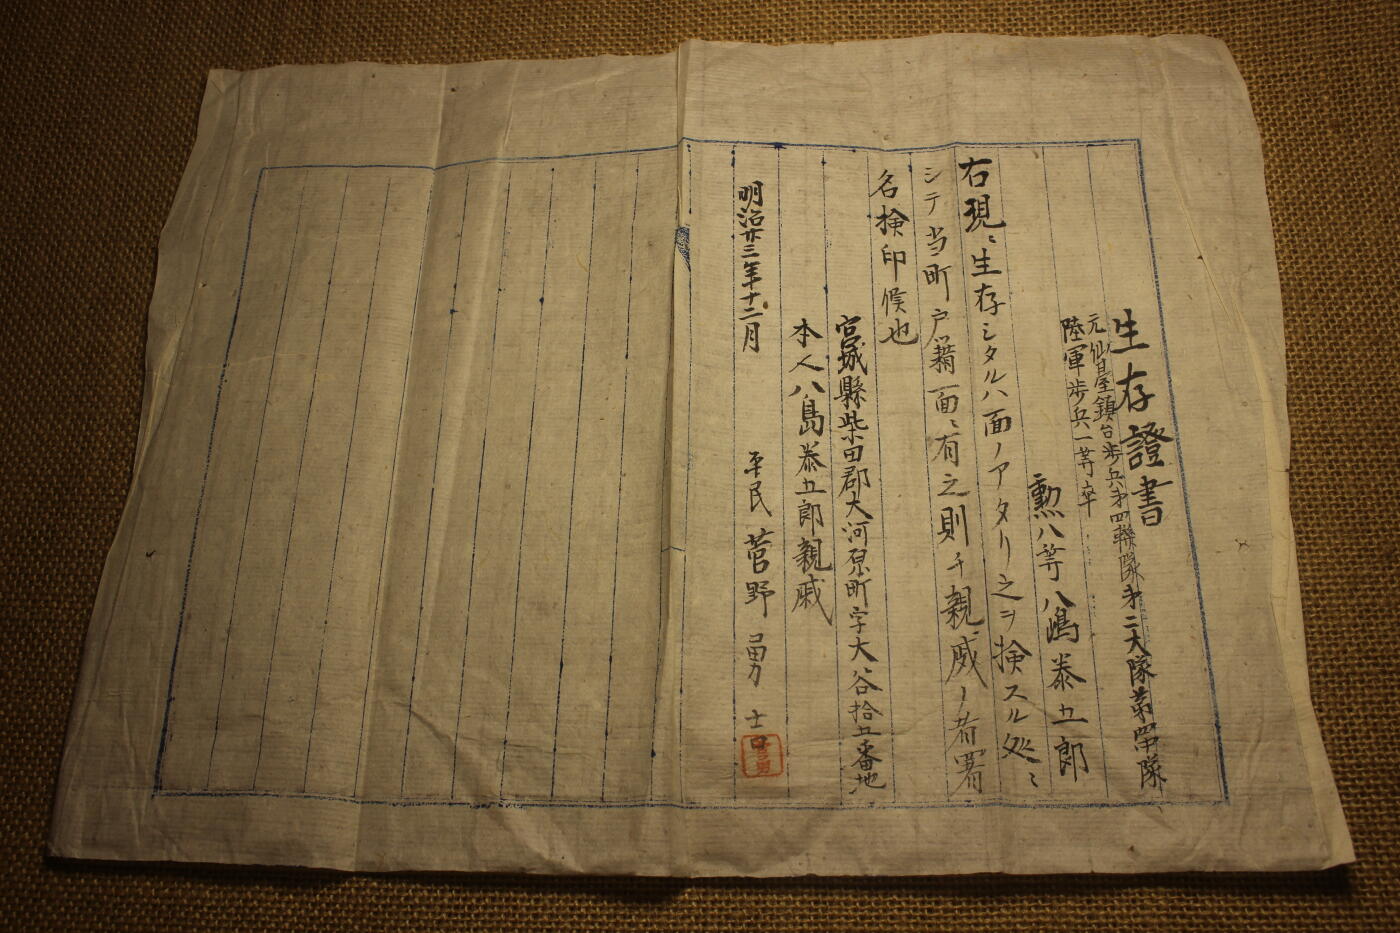 生存證書
元仙臺鎮台歩兵第四聯隊第二大隊第四中隊
陸軍歩兵一等卒
勲八等八嶋泰五郎
右現ニ生存シタルハ面ノアタリ之ヲ検スル処ニ
シテ当町戸籍面ニ有之則チ親戚ノ者署
名検印候也
宮城縣柴田郡大河原町字大谷拾五番地
本人八島泰五郎親戚
平民菅野勇士
明治廿三年十二月